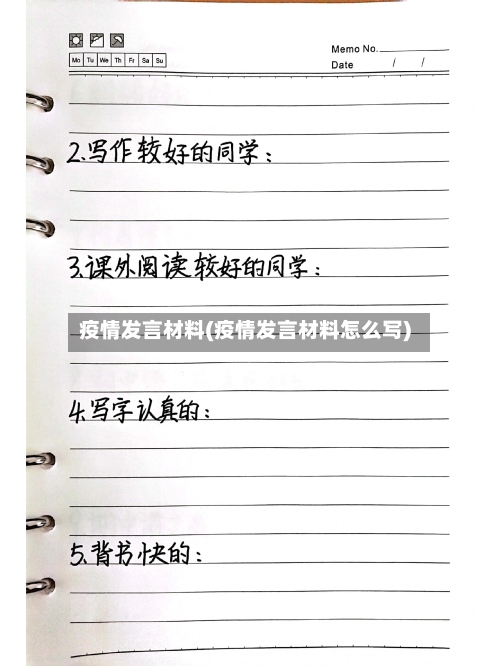 Memo No.
Mo Tu We Th Fr Sa Su
Date / /
2.写作较好的同学：
3.课外阅读较好的同学：
疫情发言材料(疫情发言材料怎么写)
4.写字认真的：
5.背书快的：